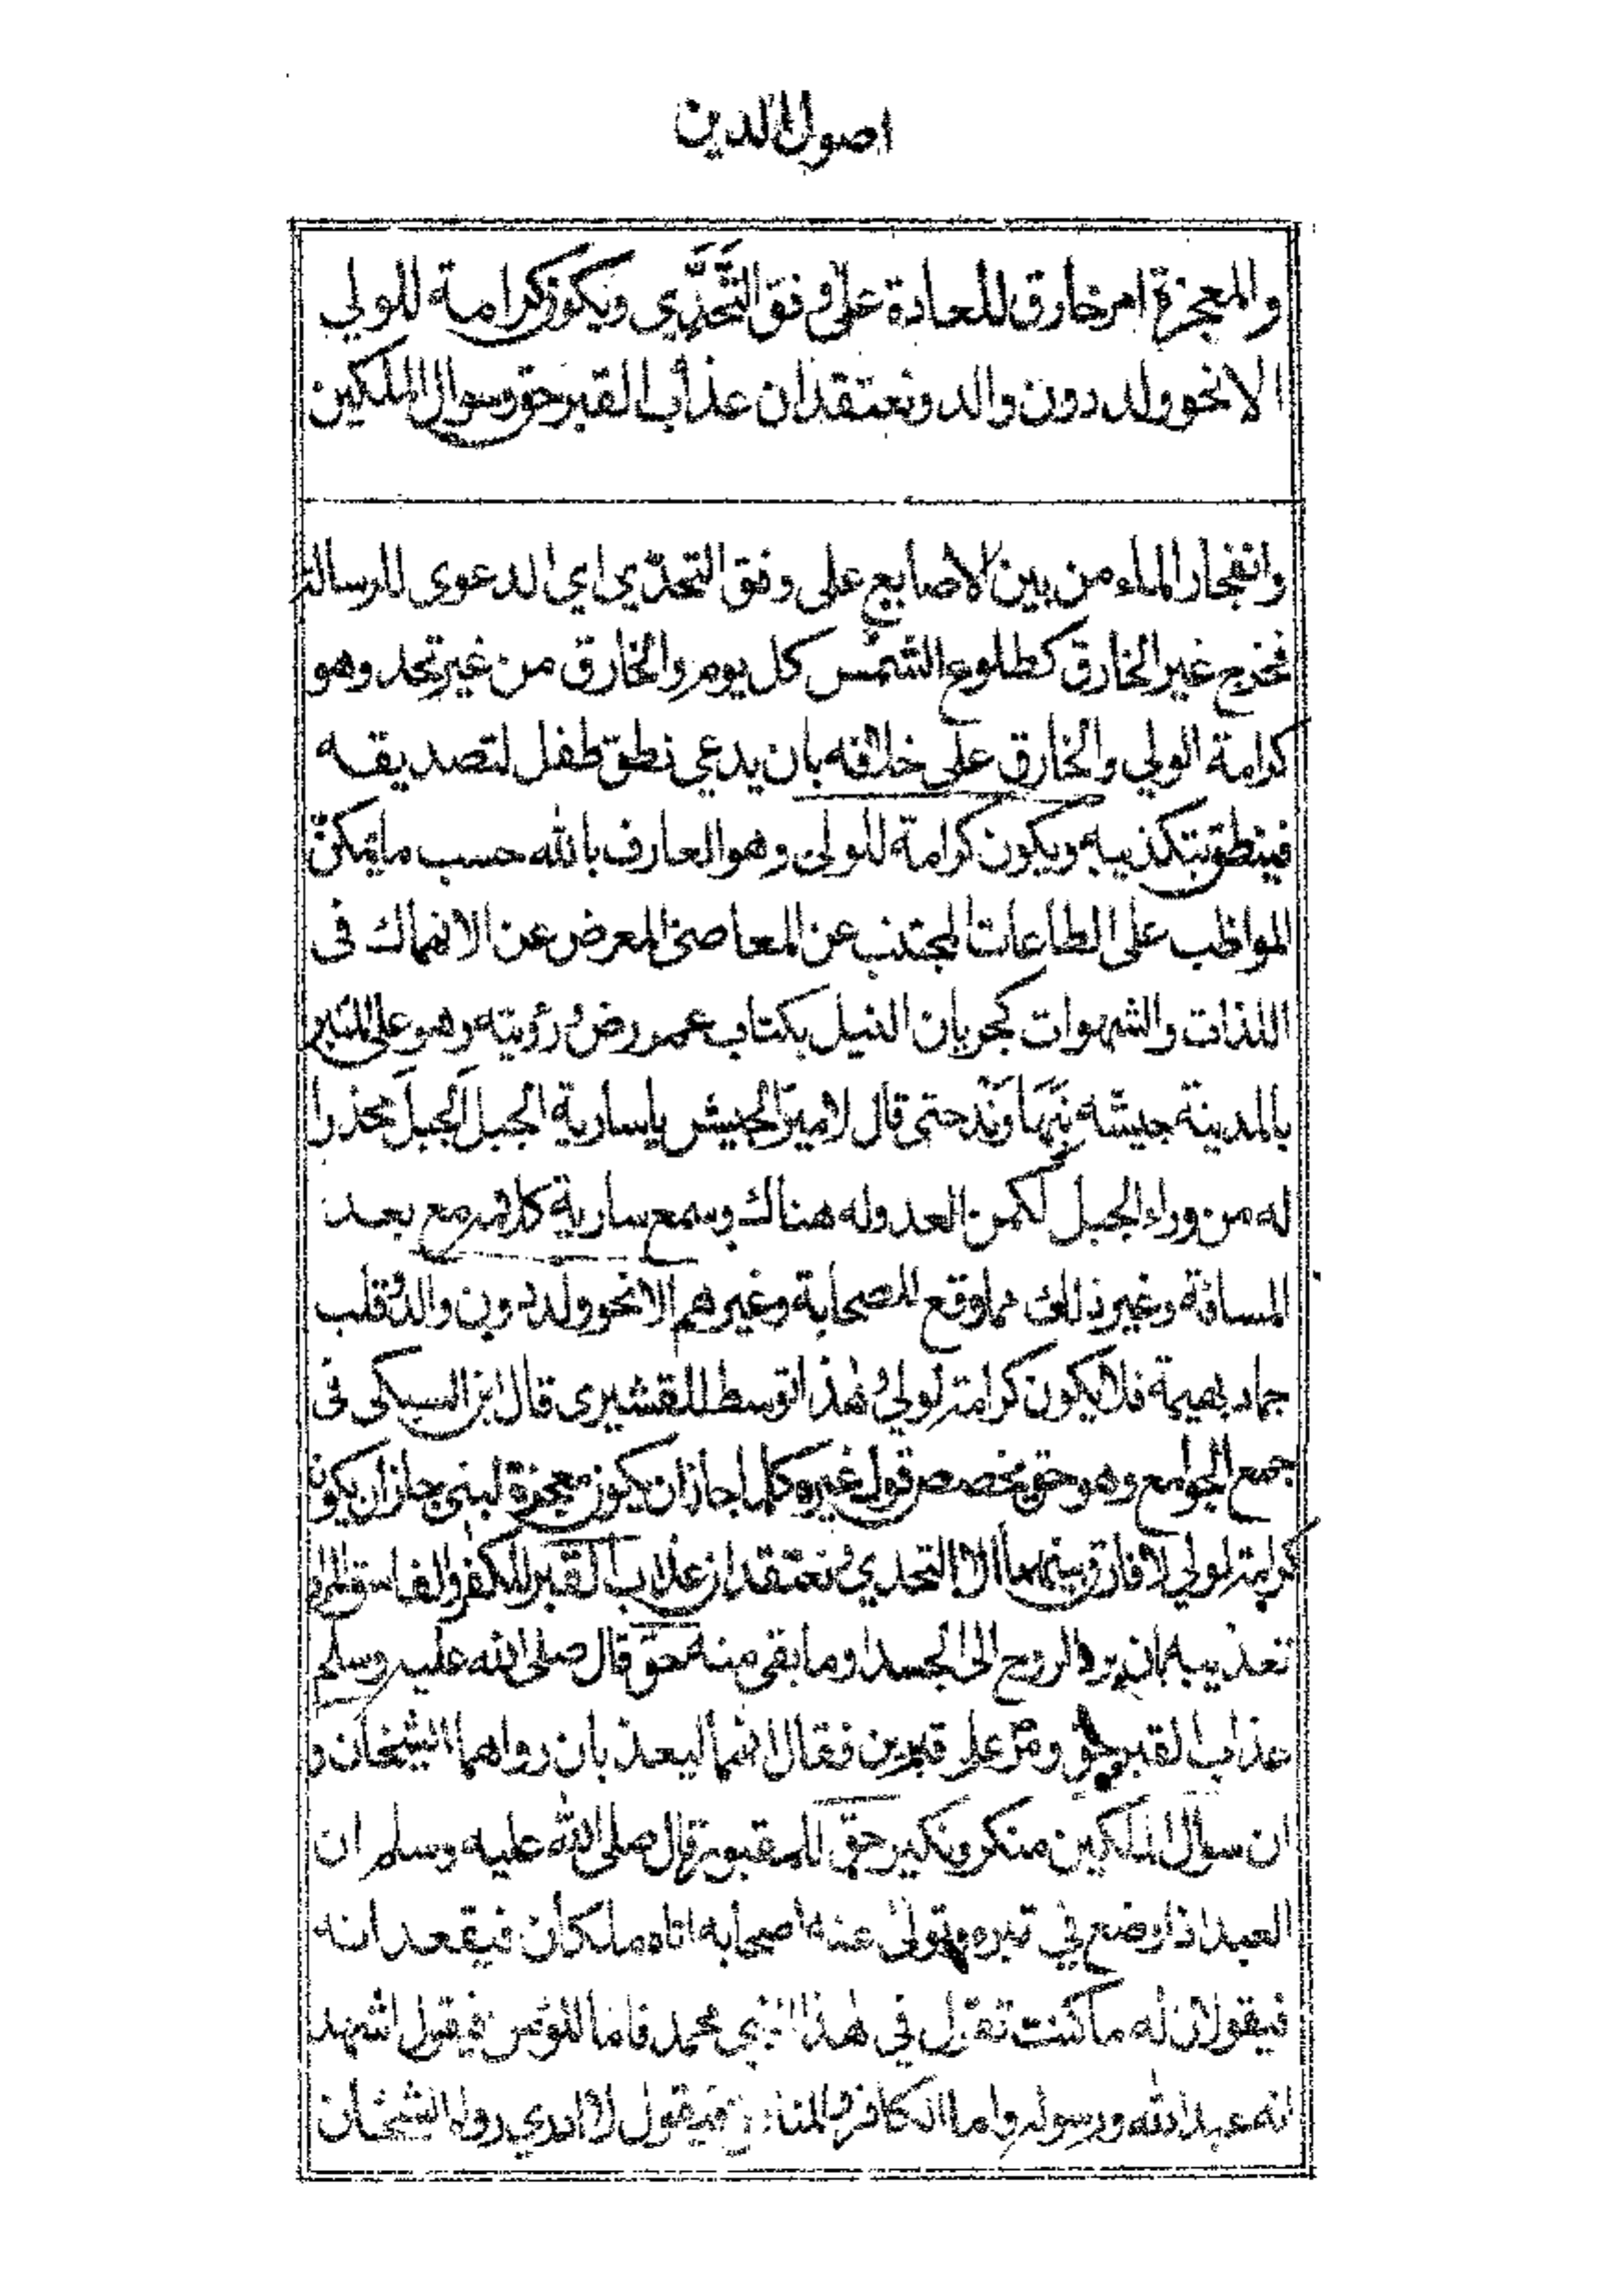 اصول الدين
والمعجزة امر خارق للعادة على وفق التَّحَدِّي ويكون كرامة للولي
الا نحو ولد دون والد ونعتقد ان عذاب القبر حق وسوال الملكين
وانفجار الماء من بين الاصابع على وفق التحدّي اي الدعوى للرسالة
فخرج غير الخارق كطلوع الشمس كل يوم والخارق من غير تحد وهو
كرامة الولي والخارق على خلافه بان يدعي نطق طفل لتصديقه
فينطق بتكذيبه ويكون كرامة للولى وهو العارف بالله حسب ما يمكن
المواظب على الطاعات المجتنب عن المعاصى المعرض عن الانهماك فى
اللذات والشهوات كجريان النيل بكتاب عمر رض ورؤيته وهو على المنبر
بالمدينة جيشه بنهاوند حتى قال لامير الجيش يا سارية الجبل الجبل محذرا
له من وراء الجبل لكمن العدو له هناك وسمع سارية كلامه مع بعد
المسافة وغير ذلك مما وقع للصحابة وغيرهم الا نحو ولد دون والد وقلب
جماد بهيمة فلا يكون كرامة لولي وهذا توسط للقشيرى قال ابن السبكى فى
جمع الجوامع وهو حق يخصص قول غيره كلما جاز ان يكون معجزة لنبى جاز ان يكون
كرامة لولي لا فارق بينهما الا التحدي ونعتقد ان عذاب القبر للكافر والفاسق المراد
تعذيبه بان يرد الروح الى الجسد او ما بقى منه حق قال صلى الله عليه وسلم
عذاب القبر حق ومرّ على قبرين فقال انهما ليعذبان رواهما الشيخان و
ان سوال الملكين منكر ونكير حق للمقبور قال صلى الله عليه وسلم ان
العبد اذا وضع في قبره وتولى عنه اصحابه اتاه ملكان فيقعدانه
فيقولان له ما كنت تقول في هذا النبي محمد فاما المؤمن فيقول اشهد
انه عبد الله ورسوله واما الكافر والمنافق فيقول لا ادري رواه الشيخان